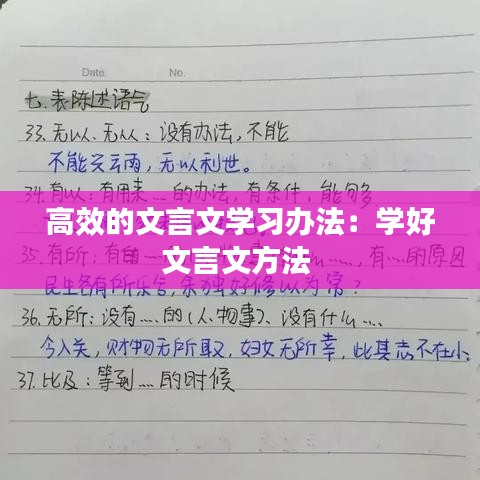 Date. No.
七.表陈述语气
33.无以、无从：没有办法,不能
不能兴云雨，无以利世。
34.有以：有用来…的办法，有条件，能够多
高效的文言文学习办法：学好
文言文方法
35.有所：有的
有....的原因
民生各有所乐兮,余独好修以为常？
36.无所：没有....的(人、物事)、没有什么....
今入关，财物无所取，妇女无所幸，此其志不在小.
37.比及：等到....的时候